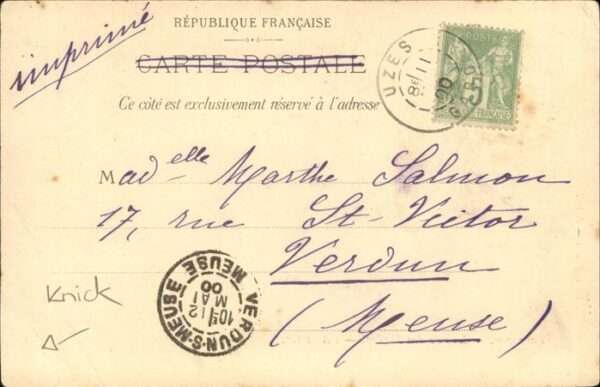 imprimé
RÉPUBLIQUE FRANÇAISE
CARTE POSTALE
Ce côté est exclusivement réservé à l'adresse
UZES
8E 11
00
GARD
POSTE
5
FRANÇAISE
Madelle Marthe Salmon
17, rue St-Victor
Verdun
(Meuse)
VERDUN-S-MEUSE
MEUSE
10E 12
MAI
00
Knick